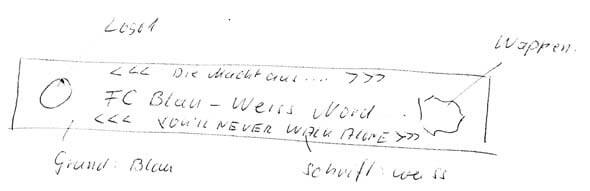 Logo
Wappen
<<< Die Macht aus.... >>>
FC Blau-Weiss Nord...
<<< YOU'LL NEVER WALK ALONE >>>
Grund: Blau
Schrift: weiss